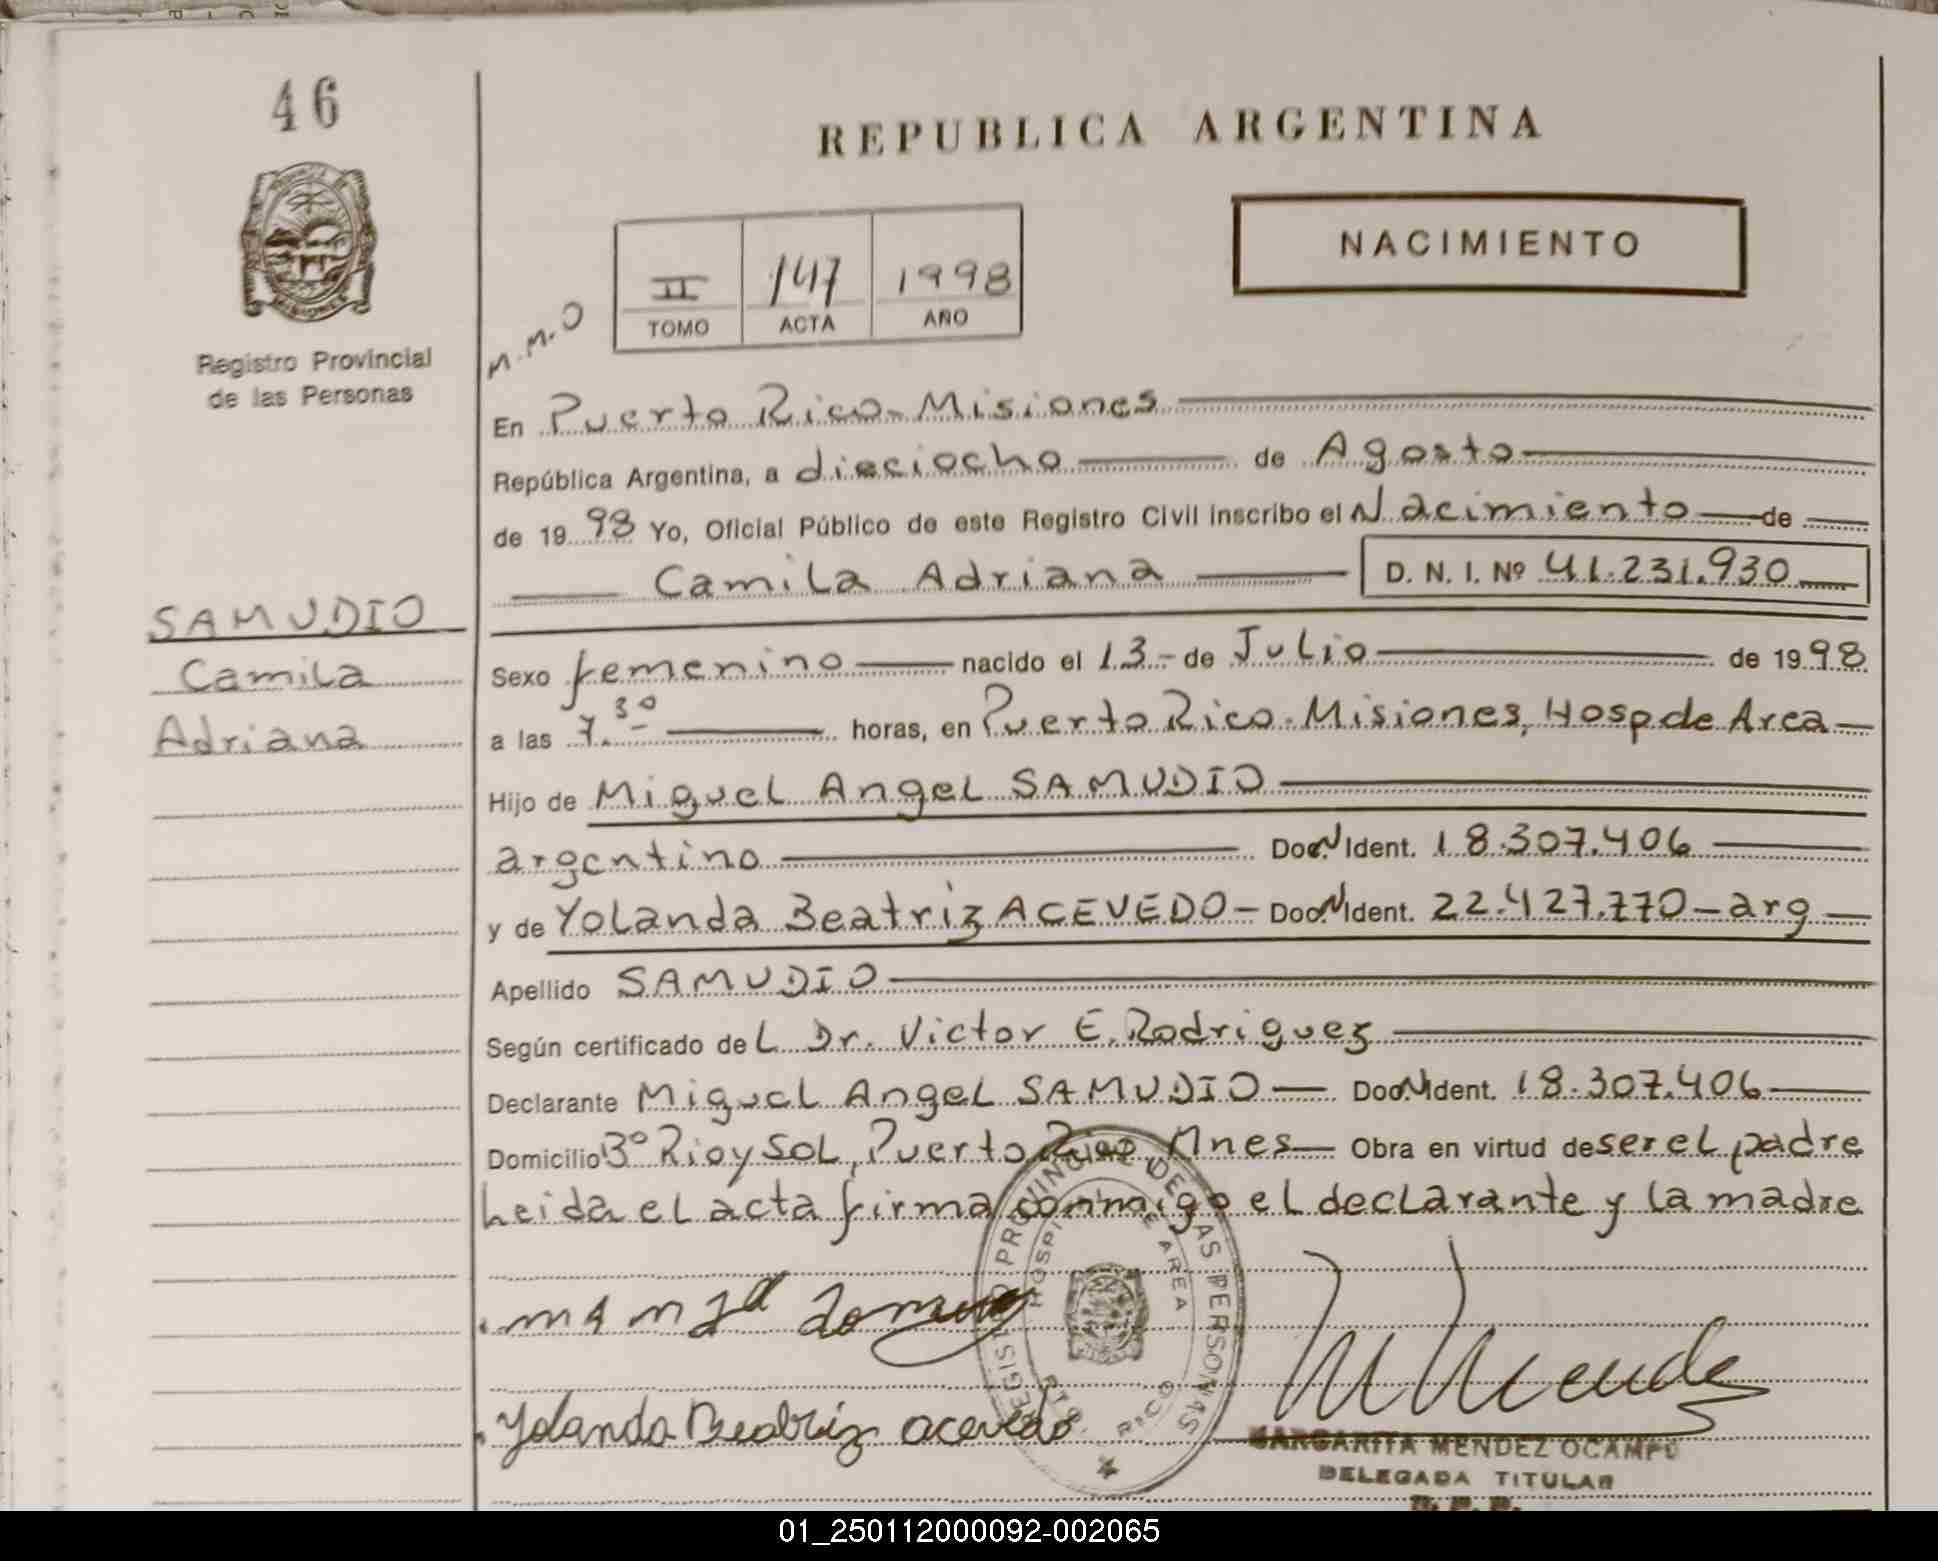 46
REPUBLICA ARGENTINA
NACIMIENTO
II 147 1998
TOMO ACTA AÑO
M.M.O
MISIONES
Registro Provincial
de las Personas
En Puerto Rico - Misiones
República Argentina, a dieciocho de Agosto
de 1998 Yo, Oficial Público de este Registro Civil inscribo el Nacimiento de
Camila Adriana D. N. I. Nº 41.231.930
SAMUDIO
Camila
Adriana
Sexo femenino nacido el 13 - de Julio de 1998
a las 7.30 horas, en Puerto Rico - Misiones, Hosp de Area
Hijo de Miguel Angel SAMUDIO
argentino Doc. N Ident. 18.307.406
y de Yolanda Beatriz ACEVEDO - Doc. N Ident. 22.427.770 - arg
Apellido SAMUDIO
Según certificado del Dr. Victor E. Rodriguez
Declarante Miguel Angel SAMUDIO Doc. N Ident. 18.307.406
Domicilio Bº Rio y Sol, Puerto Rico, Mnes Obra en virtud de ser el padre
Leida el acta firma conmigo el declarante y la madre
REGISTRO PROVINCIAL DE LAS PERSONAS
HOSPITAL DE AREA
PTO. RICO
Yolanda Beatriz acevedo
MARGARITA MENDEZ OCAMPO
DELEGADA TITULAR
R. P. P.
01_250112000092-002065